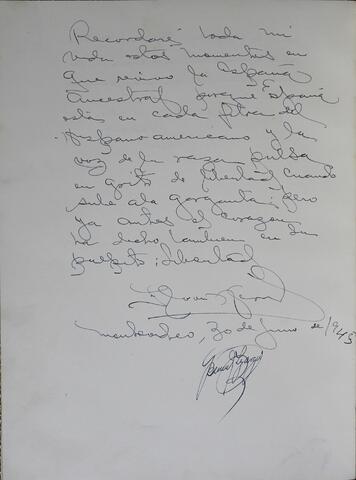 Recordaré toda mi
vida estos momentos en
que revivo la España
Ancestral porque España
está en cada fibra del
hispano americano y la
voz de la raza pulsa
en grito de libertad cuando
sube a la garganta; pero
ya antes el corazón
ha dicho también en su
¡libertad!
Montevideo, 30 de Junio de 1945